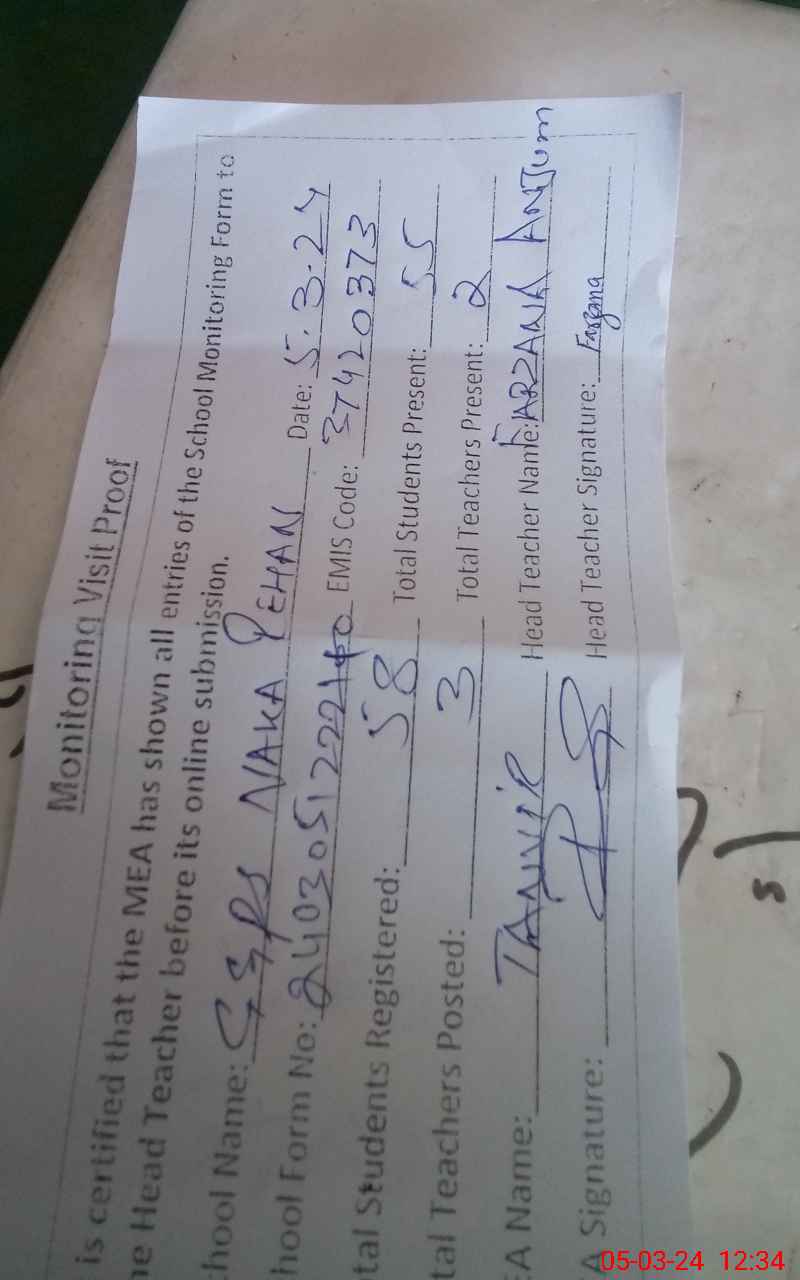 Monitoring Visit Proof
is certified that the MEA has shown all entries of the School Monitoring Form to
he Head Teacher before its online submission.
chool Name: GGPS NAKA PEHAN Date: 5.3.24
hool Form No: EMIS Code: 37420373
tal Students Registered: 58 Total Students Present: 55
tal Teachers Posted: 3 Total Teachers Present: 2
EA Name: TANVIR Head Teacher Name: FARZANA ANJUM
A Signature: Head Teacher Signature: Farzana
05-03-24 12:34